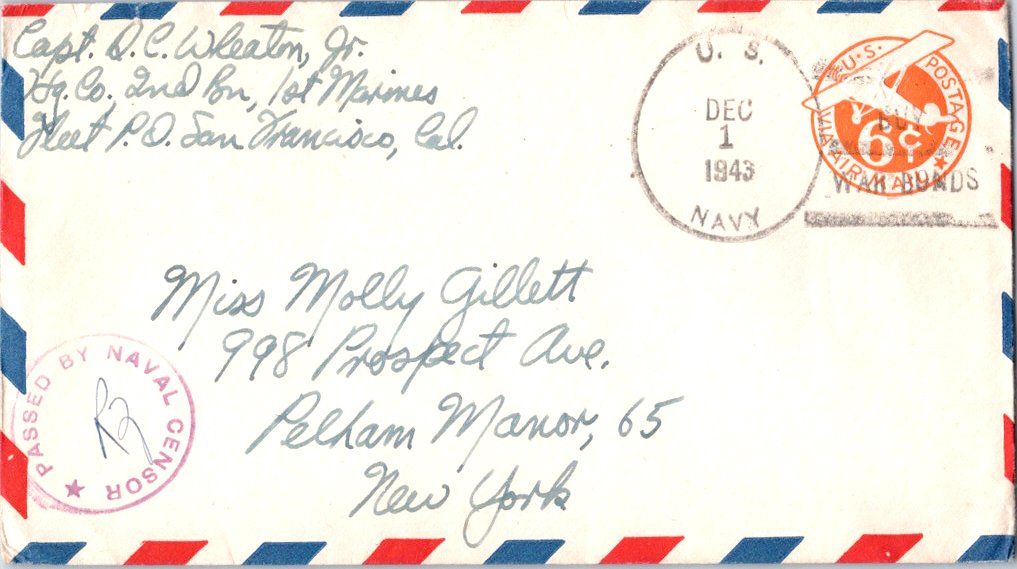 Capt. D. C. Wheaton, Jr.
Hq. Co., 2nd Bn, 1st Marines
Fleet P.O. San Francisco, Cal.
U. S.
DEC
1
1943
NAVY
U.S. POSTAGE
6¢
VIA AIR MAIL
BUY
WAR BONDS
Miss Molly Gillett
998 Prospect Ave.
Pelham Manor, 65
New York
PASSED BY NAVAL CENSOR